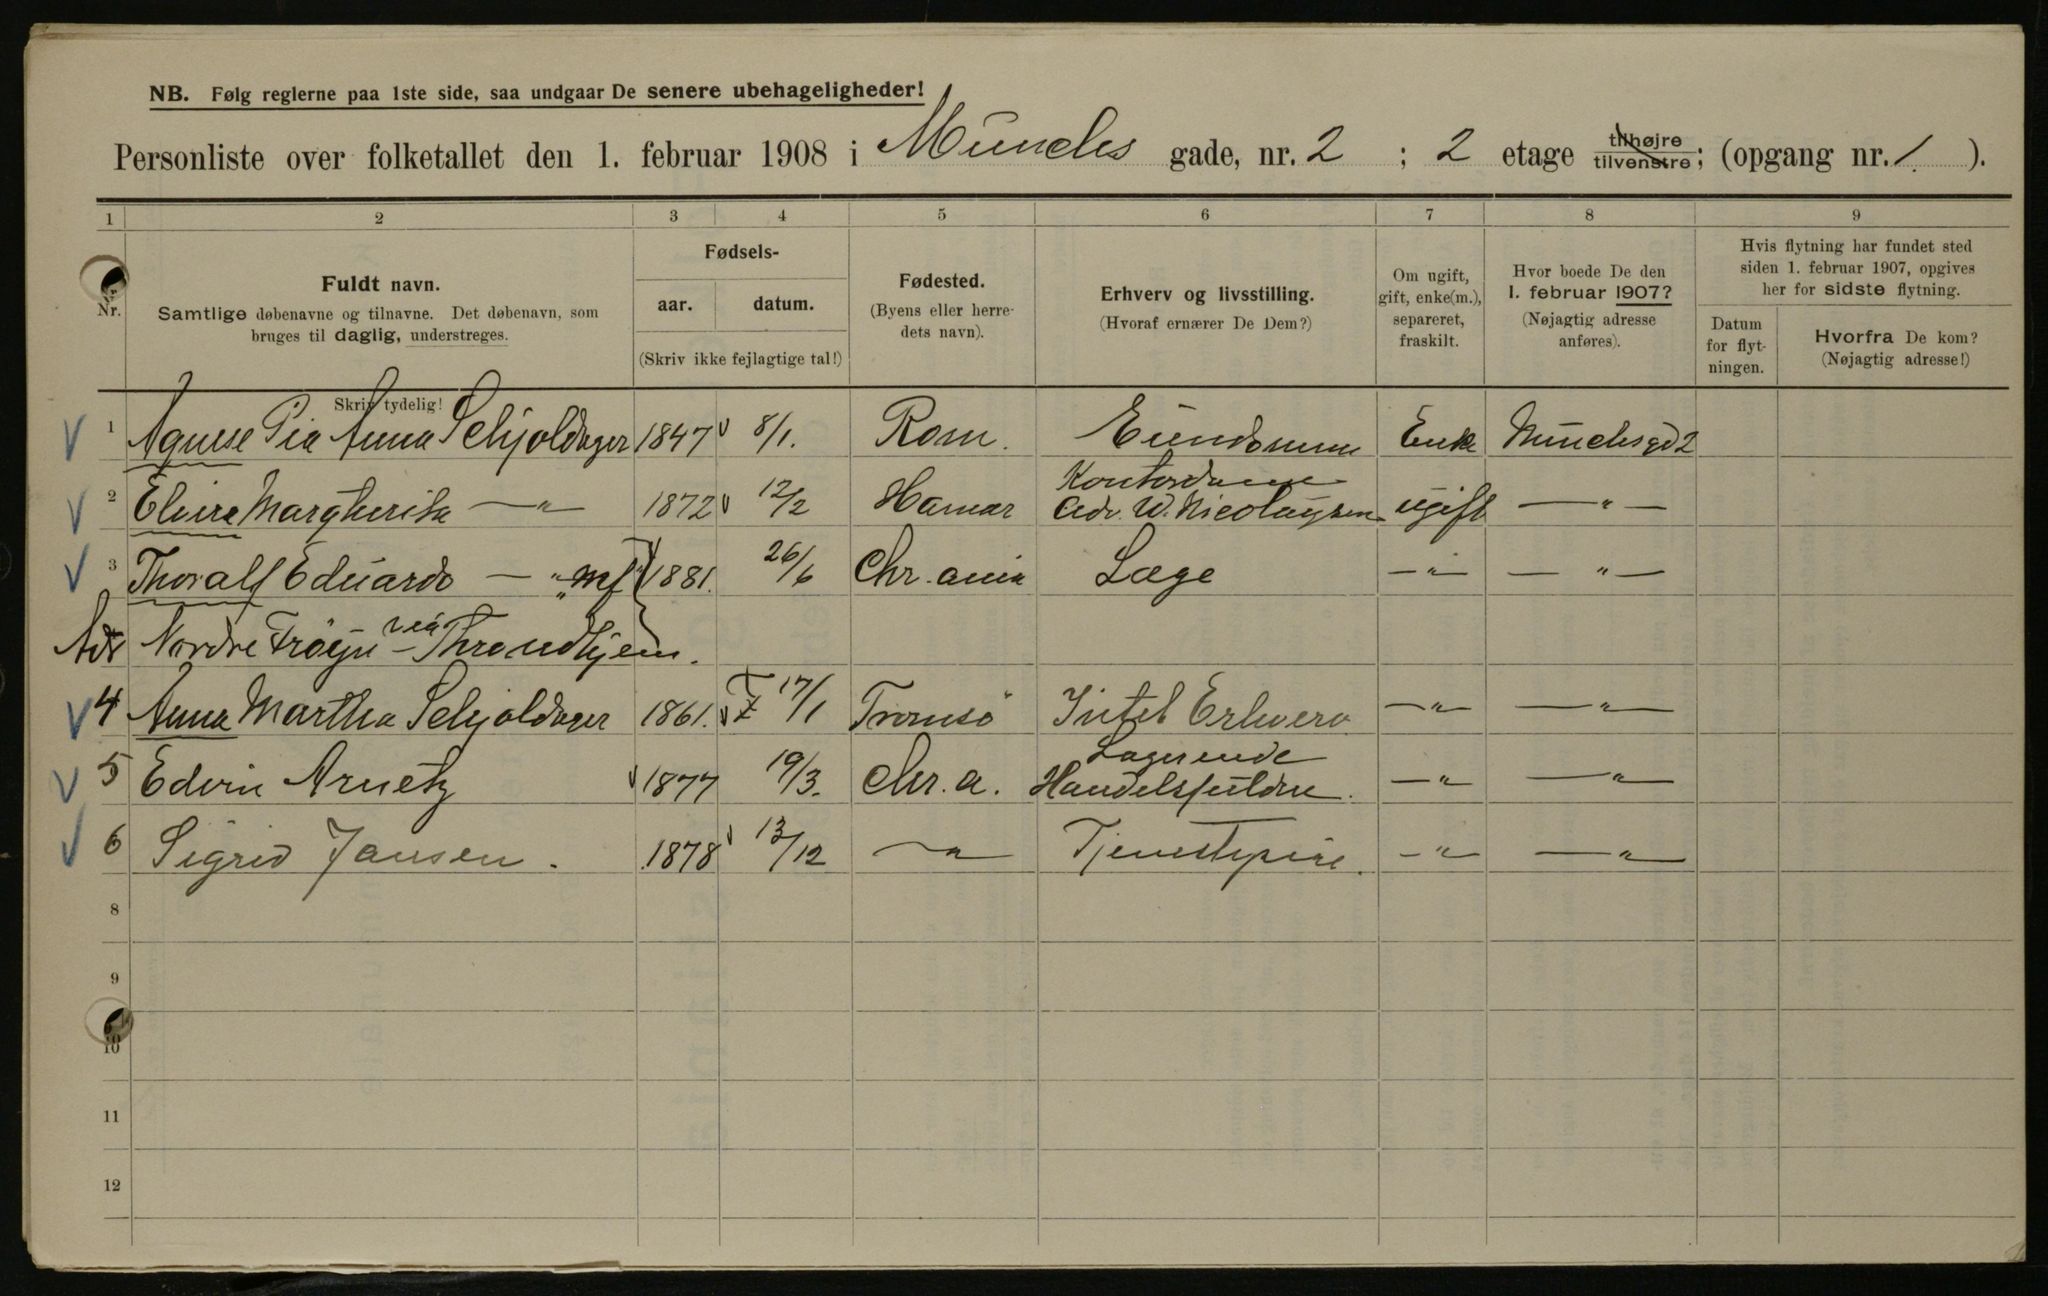 NB. Følg reglerne paa 1ste side, saa undgaar De senere ubehageligheder!
Personliste over folketallet den 1. februar 1908 i Munchs gade, nr. 2 ; 2 etage tilhøjre tilvenstre; (opgang nr. 1. ).
1 2 3 4 5 6 7 8 9
Nr.
Fuldt navn.
Samtlige døbenavne og tilnavne. Det døbenavn, som
bruges til daglig, understreges.
Skriv tydelig!
Fødsels-
aar. datum.
(Skriv ikke fejlagtige tal!)
Fødested.
(Byens eller herre-
dets navn).
Erhverv og livsstilling.
(Hvoraf ernærer De Dem?)
Om ugift,
gift, enke(m.),
separeret,
fraskilt.
Hvor boede De den
1. februar 1907?
(Nøjagtig adresse
anføres).
Hvis flytning har fundet sted
siden 1. februar 1907, opgives
her for sidste flytning.
Datum
for flyt-
ningen.
Hvorfra De kom?
(Nøjagtig adresse!)
1 Agnese Pia Anna Schjoldager 1847 8/1. Rom. Enke Munchsgd 2
2 Margherita — " — 1872 12/2 Hamar Kontordame
Adv. W. Nicolaysen ugift — " —
3 Thoralf Eduardo — " — mf 1881. 26/6 Chr.ania Læge — " — — " —
Adr Nordre Frøyn via Throndhjem.
4 Anna Martha Schjoldager 1861. 17/1 Tromsö Intet Erhverv. — " — — " —
5 Edvin Arnetz 1877 19/3. Chr.a. Lagerende
— " — — " —
6 Sigrid Jansen. 1878 13/12 — " — Tjenestepige. — " — — " —
8
9
10
11
12